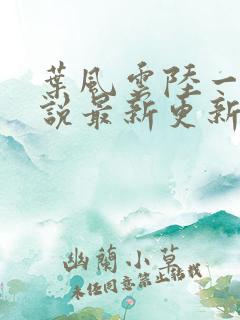 葉風雲陸一
說最新更新
幽蘭小草
未經同意禁止轉載